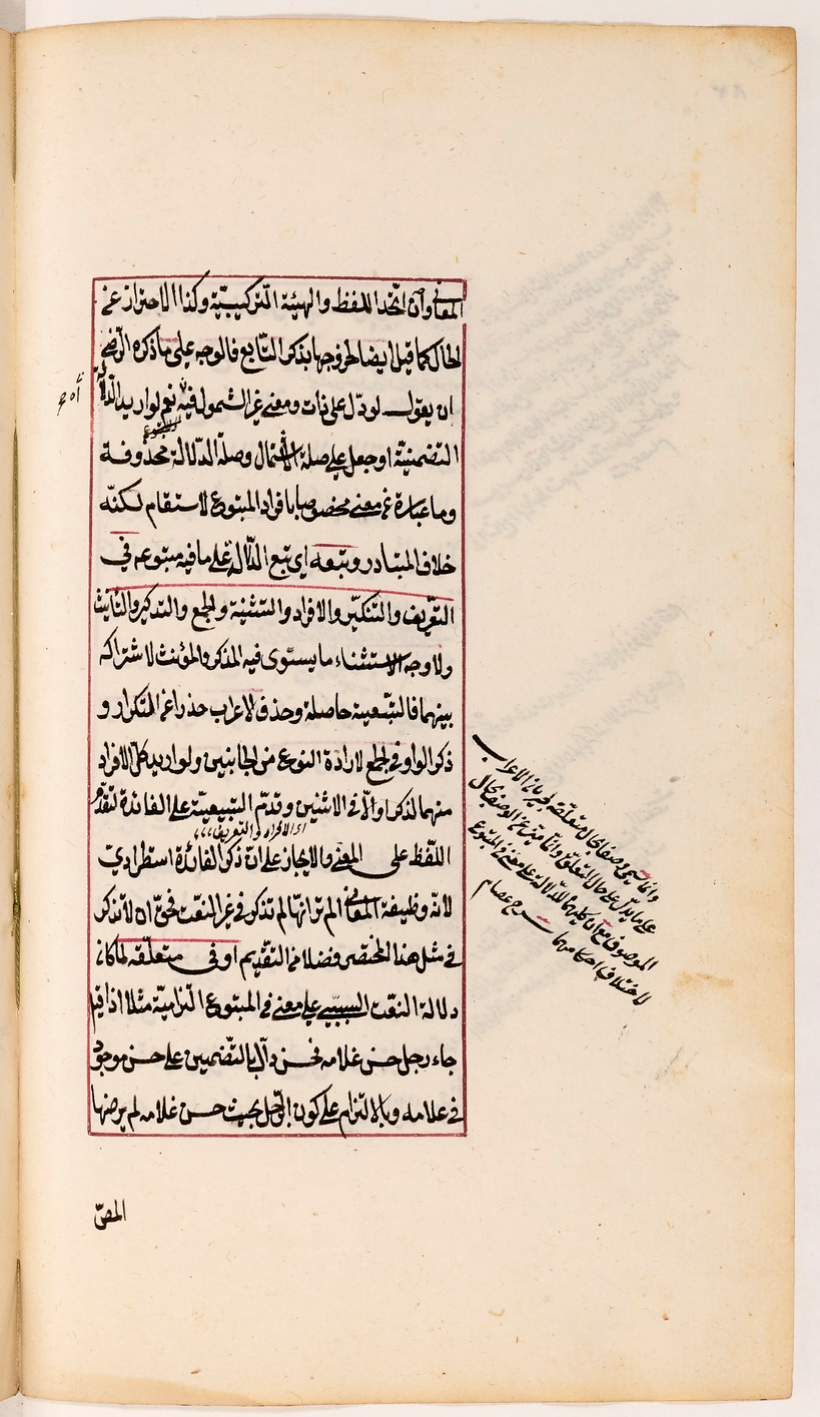 المعاني وان اتحد اللفظ والهيئة التركيبيّة وكذا الاحتراز عن
الحال كما قيل ايضا لخروجها بذكر التابع فالوجه على ما ذكره الرضي
ان يقول لو دلّ على ذات ومعنى غير الشمول فيه نعم لو اريد الدلالة
التضمنيّة او جعل على صلة الاشتمال وصلة الدلالة محذوفة
وما عبارة عن معنى مخصوصا بافراد المتبوع لاستقام لكنّه
خلاف المتبادر وتبعه اى تبع الدّال على ما فيه متبوعه في
التعريف والتنكير والافراد والتثنية والجمع والتذكير والتأنيث
ولا وجه الاستثناء ما يستوى فيه المذكر والمؤنث لاشتراكه
بينهما فالتبعية حاصلة وحذف الاعراب حذرا عن التكرار و
ذكر الواو في الجمع لارادة النوع من الجانبين ولو اريد كل الافراد
منهما لذكر او الّا في الاثنين وقدّم التبعيّة على الفائدة لتقدّم
اى الافراد والتعريف
اللفظ على المعنى والايجاز على انّ ذكر الفائدة استطرادىّ
لانه وظيفة المعاني الم تر انها لم تذكر في غير النعت فحقّ ان لا تذكر
في مثل هذا المختصر فضلا عن التقديم او في متعلّقه لما كان
دلالة النعت السببي على معنى في المتبوع التزاميّة مثلا اذا قيل
جاء رجل حسن غلامه فحسن دالّ بالتضمين على حسن موجود
في غلامه وبالالتزام على كون الرّجل بحيث حسن غلامه لم يرضها
وانما سمي وصفا بحال متعلقه لجريانه الاعراب
على ما يدلّ على حال المتعلق وانما ميّز عن الوصف بحال
الموصوف مع ان كليهما للدلالة على معنى في المتبوع
لاختلاف احكامهما شرح عصام
المصّ